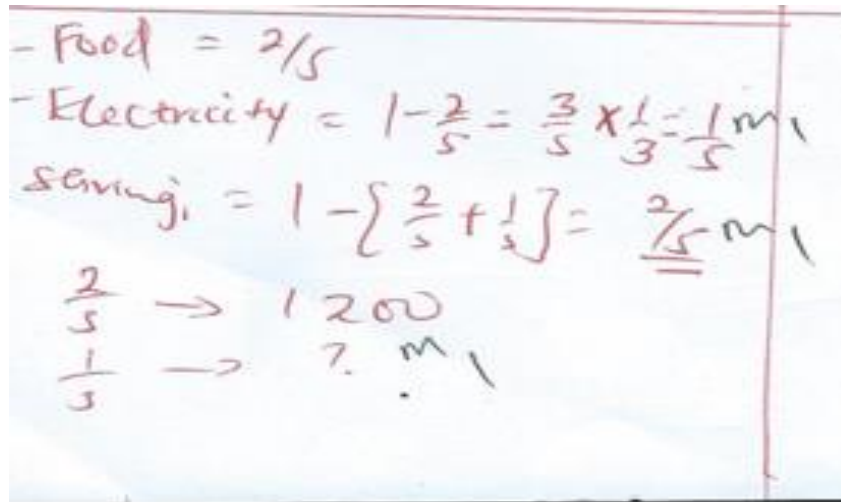 - Food = 2/5
- Electricity = 1 - 2/5 = 3/5 × 1/3 = 1/5 m1
saving, = 1 - {2/5 + 1/5} = 2/5 m1
2/5 → 1200
1/5 → ? m1